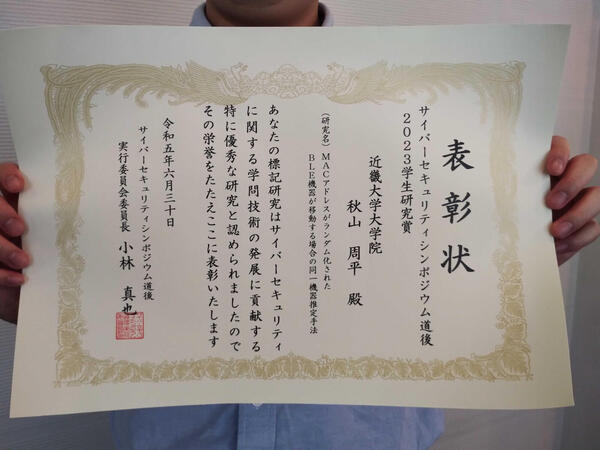 表彰状
サイバーセキュリティシンポジウム道後
2023学生研究賞
近畿大学大学院
秋山 周平 殿
(研究名) MACアドレスがランダム化された
BLE機器が移動する場合の同一機器推定手法
あなたの標記研究はサイバーセキュリティ
に関する学問技術の発展に貢献する
特に優秀な研究と認められましたので
その栄誉をたたえここに表彰いたします
令和五年六月三十日
サイバーセキュリティシンポジウム道後
実行委員会委員長 小林 真也